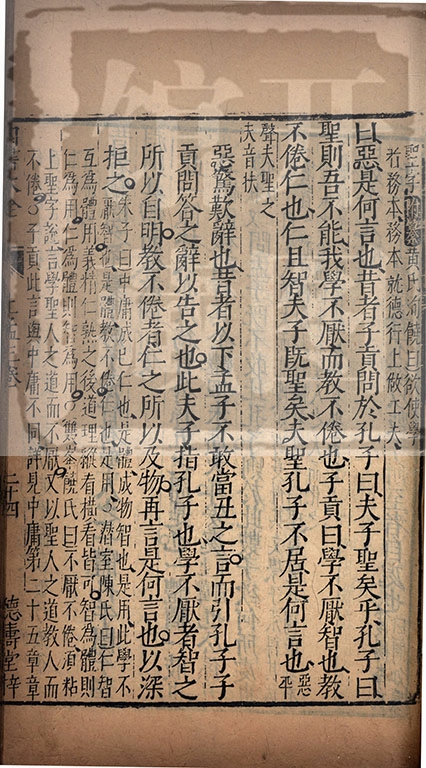 聖字附纂黃氏洵饒曰欲使學
者務本務本就德行上做工夫
曰惡是何言也昔者子貢問於孔子曰夫子聖矣乎孔子曰
聖則吾不能我學不厭而教不倦也子貢曰學不厭智也教
不倦仁也仁且智夫子旣聖矣夫聖孔子不居是何言也惡平
聲夫聖之
夫音扶
惡驚歎辭也昔者以下孟子不敢當丑之言而引孔子子
貢問答之辭以告之也此夫子指孔子也學不厭者智之
所以自明教不倦者仁之所以及物再言是何言也以深
拒之朱子曰中庸成己仁也是體成物智也是用此學不
厭智也是體教不倦仁也是用○潛室陳氏曰仁智
互為體用義精仁熟之後道理縱看橫看皆可智為體則
仁為用仁為體則智為用○雙峯饒氏曰不厭不倦須粘
上聖字說言學聖人之道而不厭又以聖人之道教人而
不倦○子貢此言與中庸不同詳見中庸第二十五章章
四書大全 上孟三卷 二十四 德壽堂梓